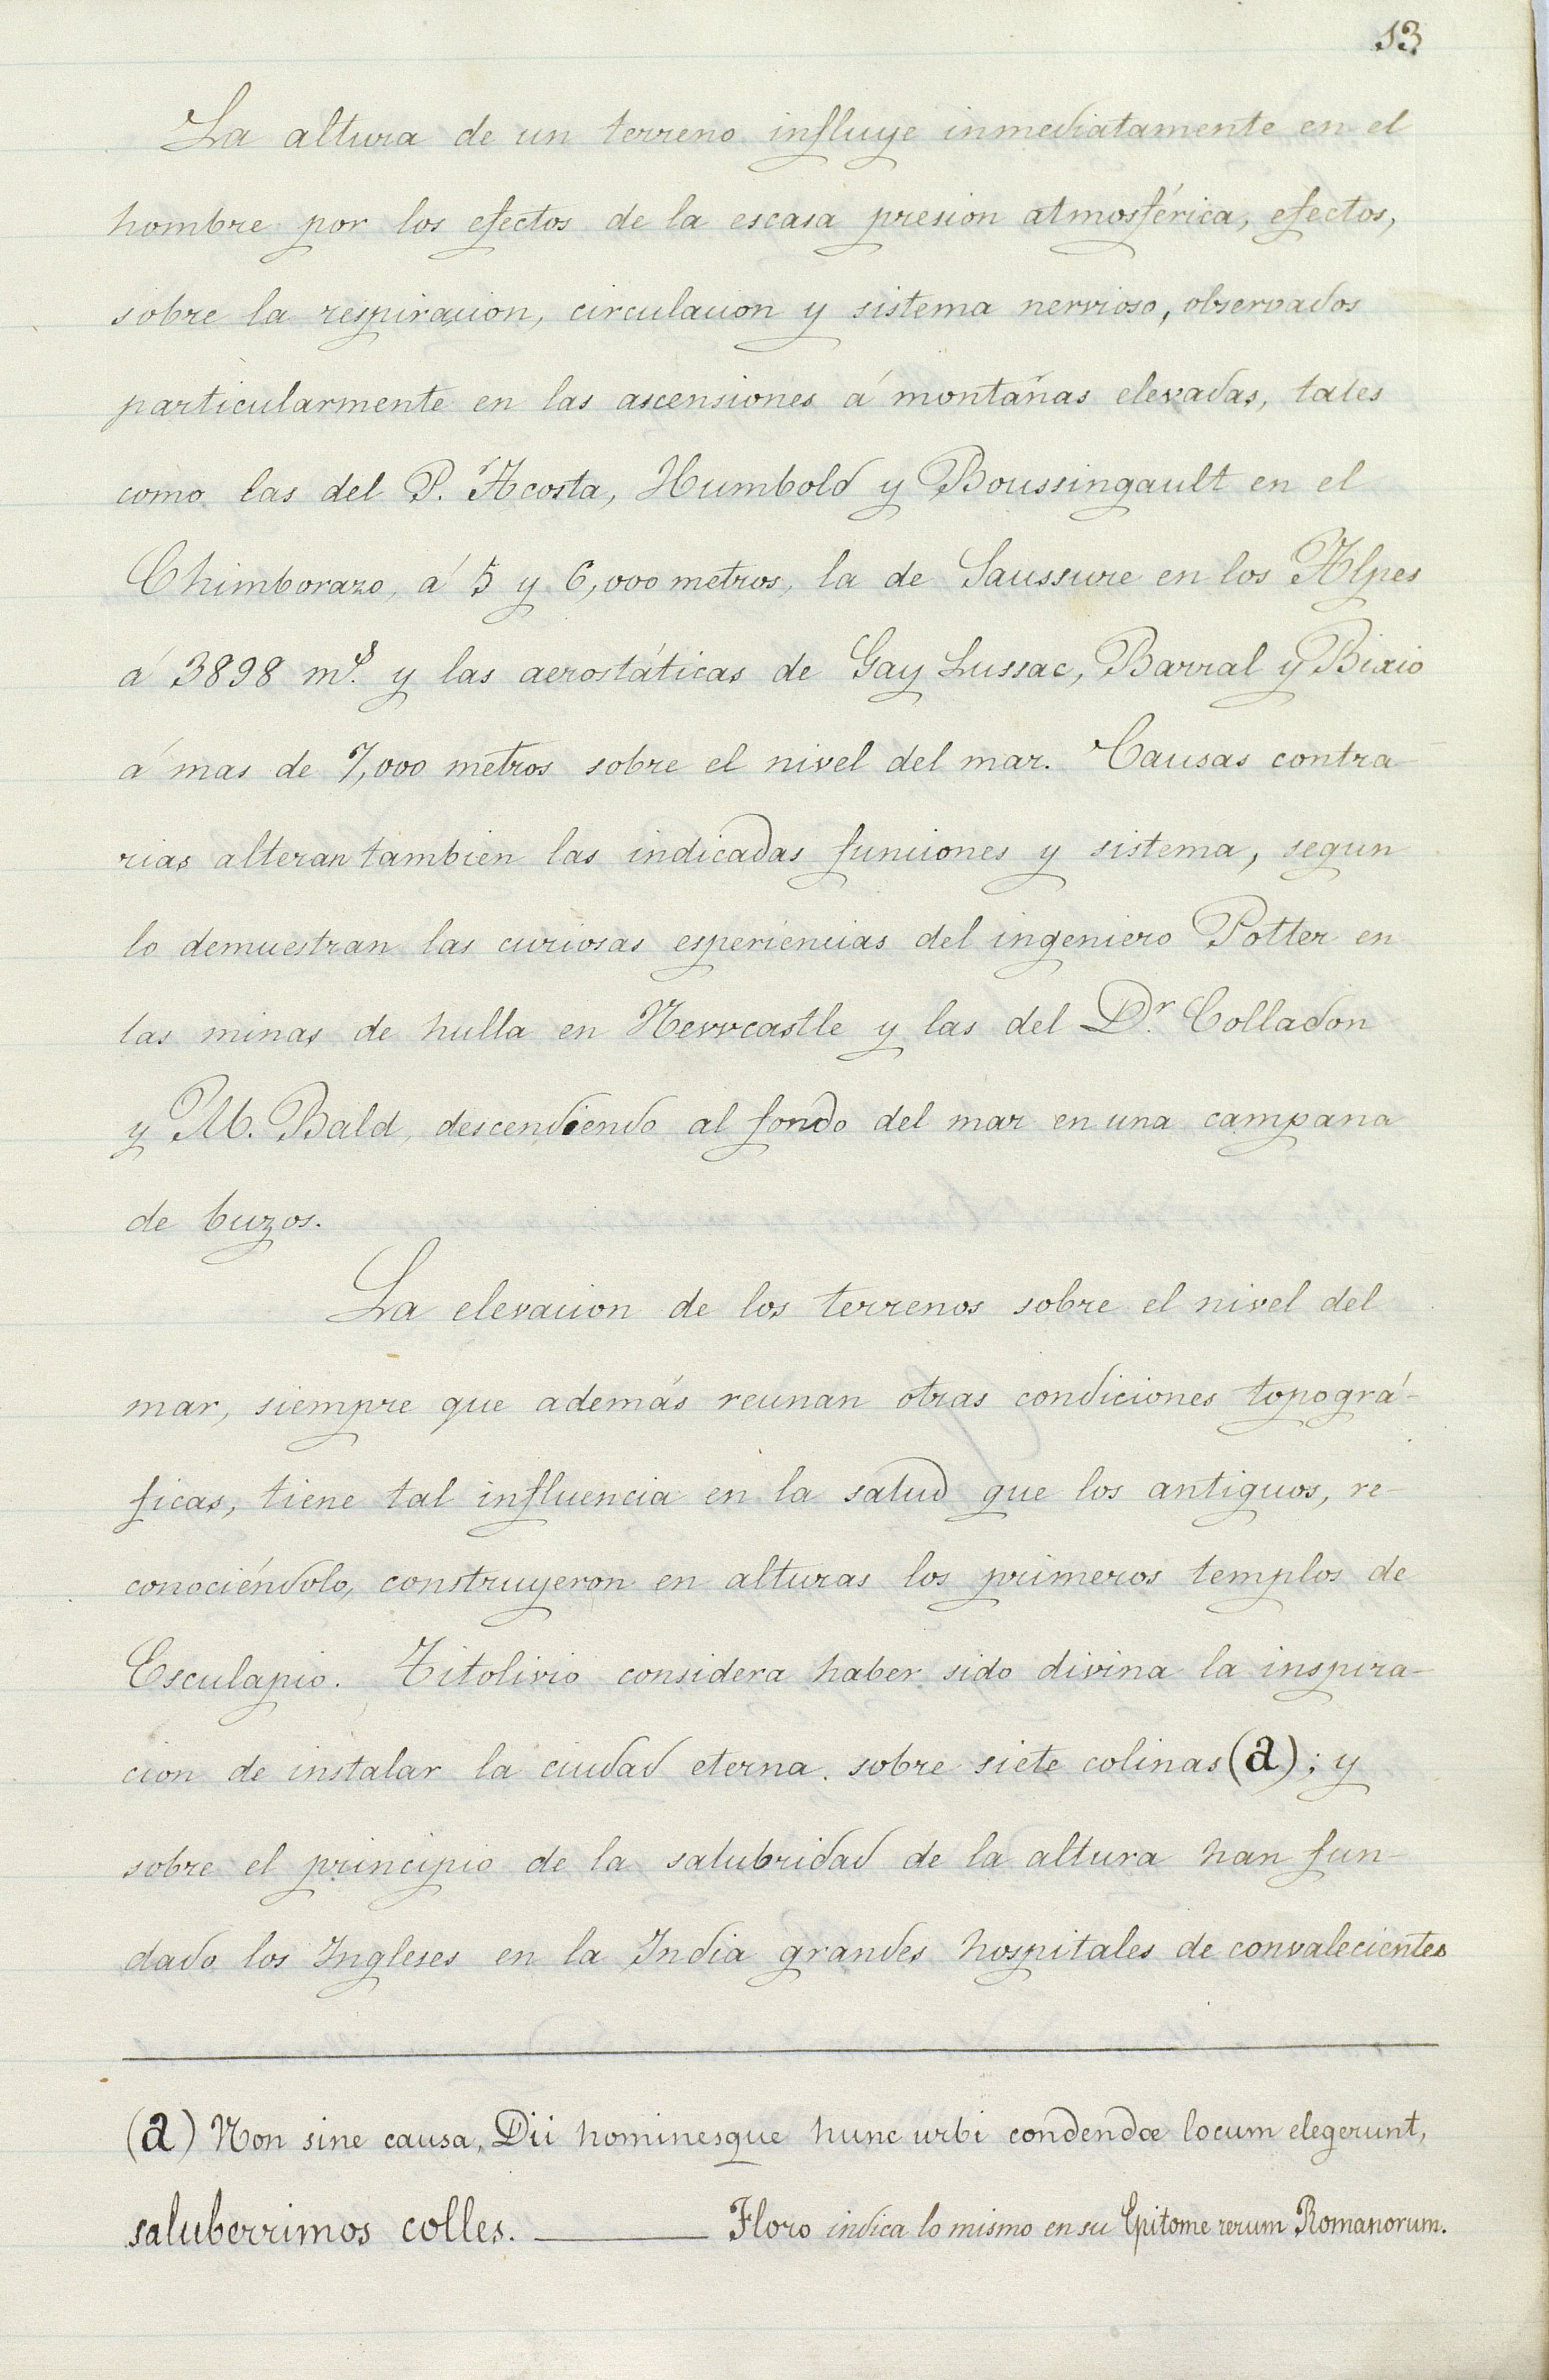 13
La altura de un terreno influye inmediatamente en el
hombre por los efectos de la escasa presion atmosférica, efectos,
sobre la respiracion, circulacion y sistema nervioso, observados
particularmente en las ascensiones á montañas elevadas, tales
como las del P. Acosta, Humbold y Boussingault en el
Chimborazo, á 5 y 6,000 metros, la de Saussure en los Alpes
á 3898 m.s y las aerostáticas de Gay Lussac, Barral y Bixio
á mas de 7,000 metros sobre el nivel del mar. Causas contra-
rias alteran tambien las indicadas funciones y sistema, segun
lo demuestran las curiosas esperiencias del ingeniero Potter en
las minas de hulla en Newcastle y las del D.r Colladon
y M. Bald, descendiendo al fondo del mar en una campana
de buzos.
La elevacion de los terrenos sobre el nivel del
mar, siempre que además reunan otras condiciones topográ-
ficas, tiene tal influencia en la salud que los antiguos, re-
conociéndolo, construyeron en alturas los primeros templos de
Esculapio. Titolivio considera haber sido divina la inspira-
cion de instalar la ciudad eterna sobre siete colinas (a); y
sobre el principio de la salubridad de la altura han fun-
dado los Ingleses en la India grandes hospitales de convalecientes
(a) Non sine causa, Dii hominesque hunc urbi condendœ locum elegerunt,
saluberrimos colles. ——— Floro indica lo mismo en su Epitome rerum Romanorum.